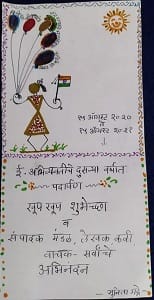 १५ ऑगस्ट २०२०
ते
१५ ऑगस्ट २०२१
ई- अभिव्यक्तीचे दुसऱ्या वर्षात
पदार्पण
खूप खूप शुभेच्छा
व
संपादक मंडळ, लेखक कवी
वाचक- सर्वांचे
अभिनंदन